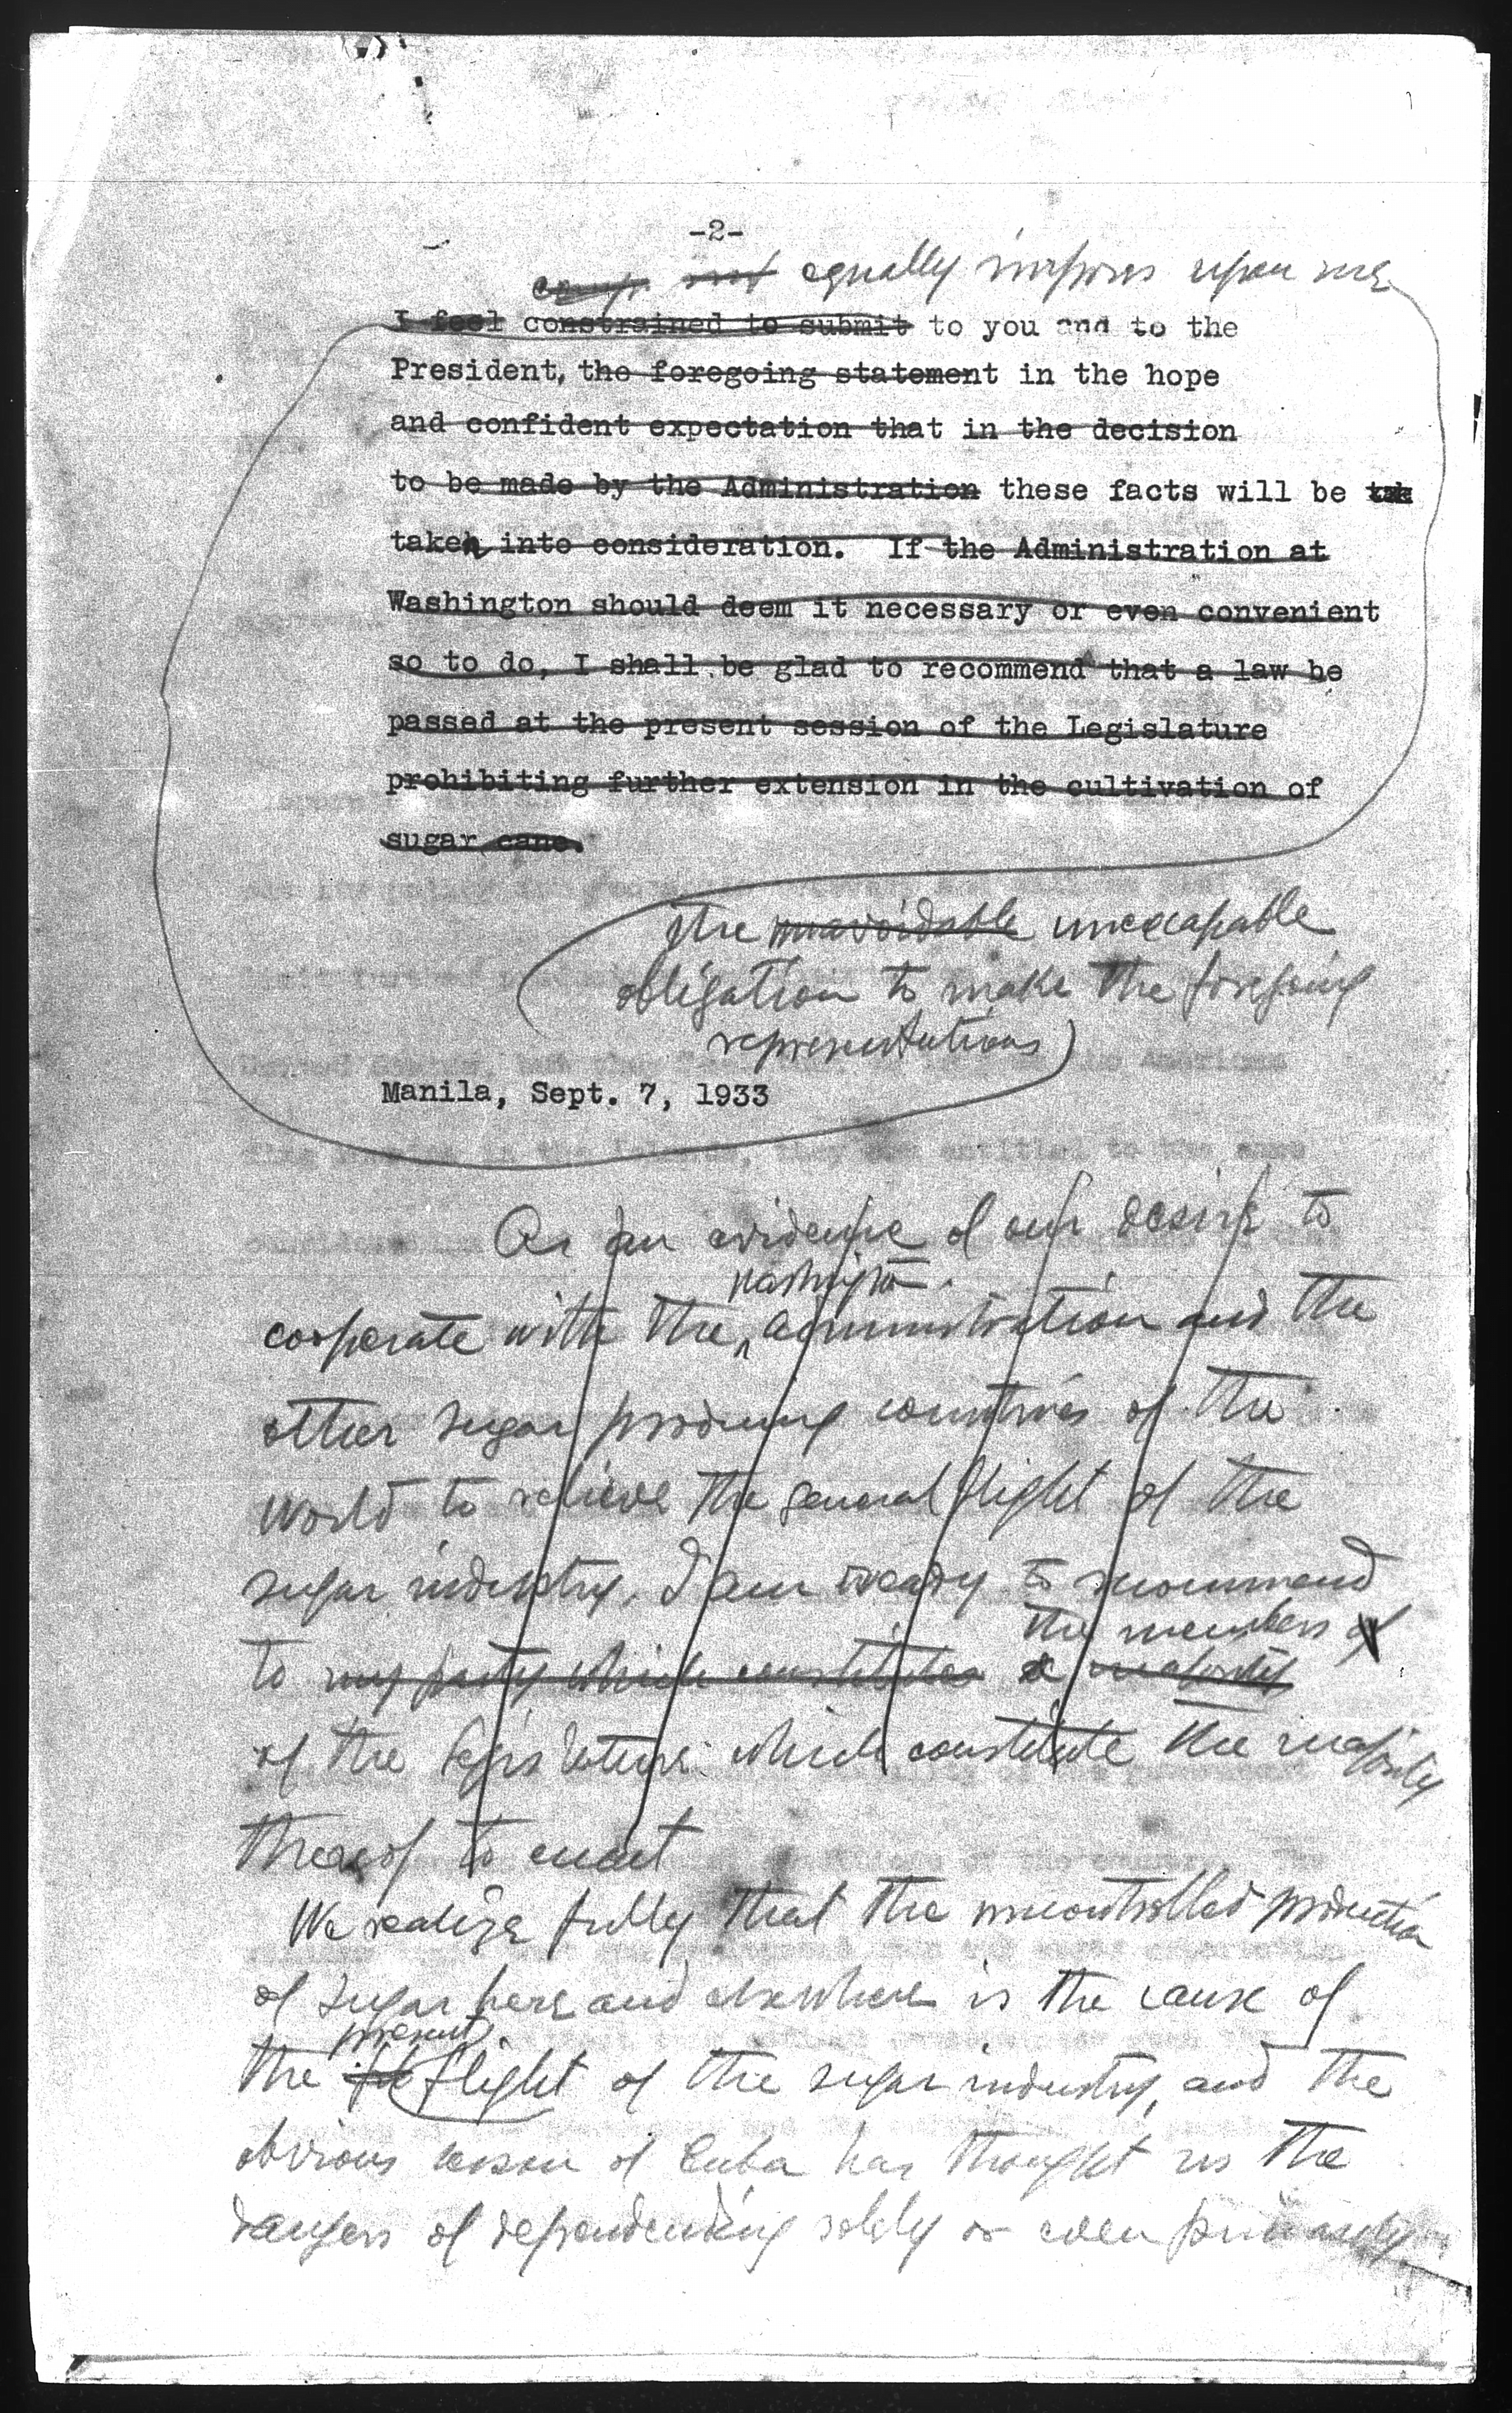 -2-
equally imposes upon me
I feel constrained to submit to you and to the
President, the foregoing statement in the hope
and confident expectation that in the decision
to be made by the Administration these facts will be tak
taken into consideration. If the Administration at
Washington should deem it necessary or even convenient
so to do, I shall be glad to recommend that a law be
passed at the present session of the Legislature
prohibiting further extension in the cultivation of
sugar cane.
the unavoidable unescapable
obligation to make the foregoing
representations
Manila, Sept. 7, 1933
As an evidence of our desire to
Washington
cooperate with the administration and the
other sugar producing countries of the
world to relieve the general plight of the
sugar industry, I am ready to recommend
the members of
to my party which constitutes a majority
of the Legislature which constitute the majority
thereof to enact
We realize fully that the uncontrolled production
of sugar here and elsewhere is the cause of
present
the plight of the sugar industry, and the
obvious lesson of Cuba has thought us the
dangers of dependending solely or even primarily